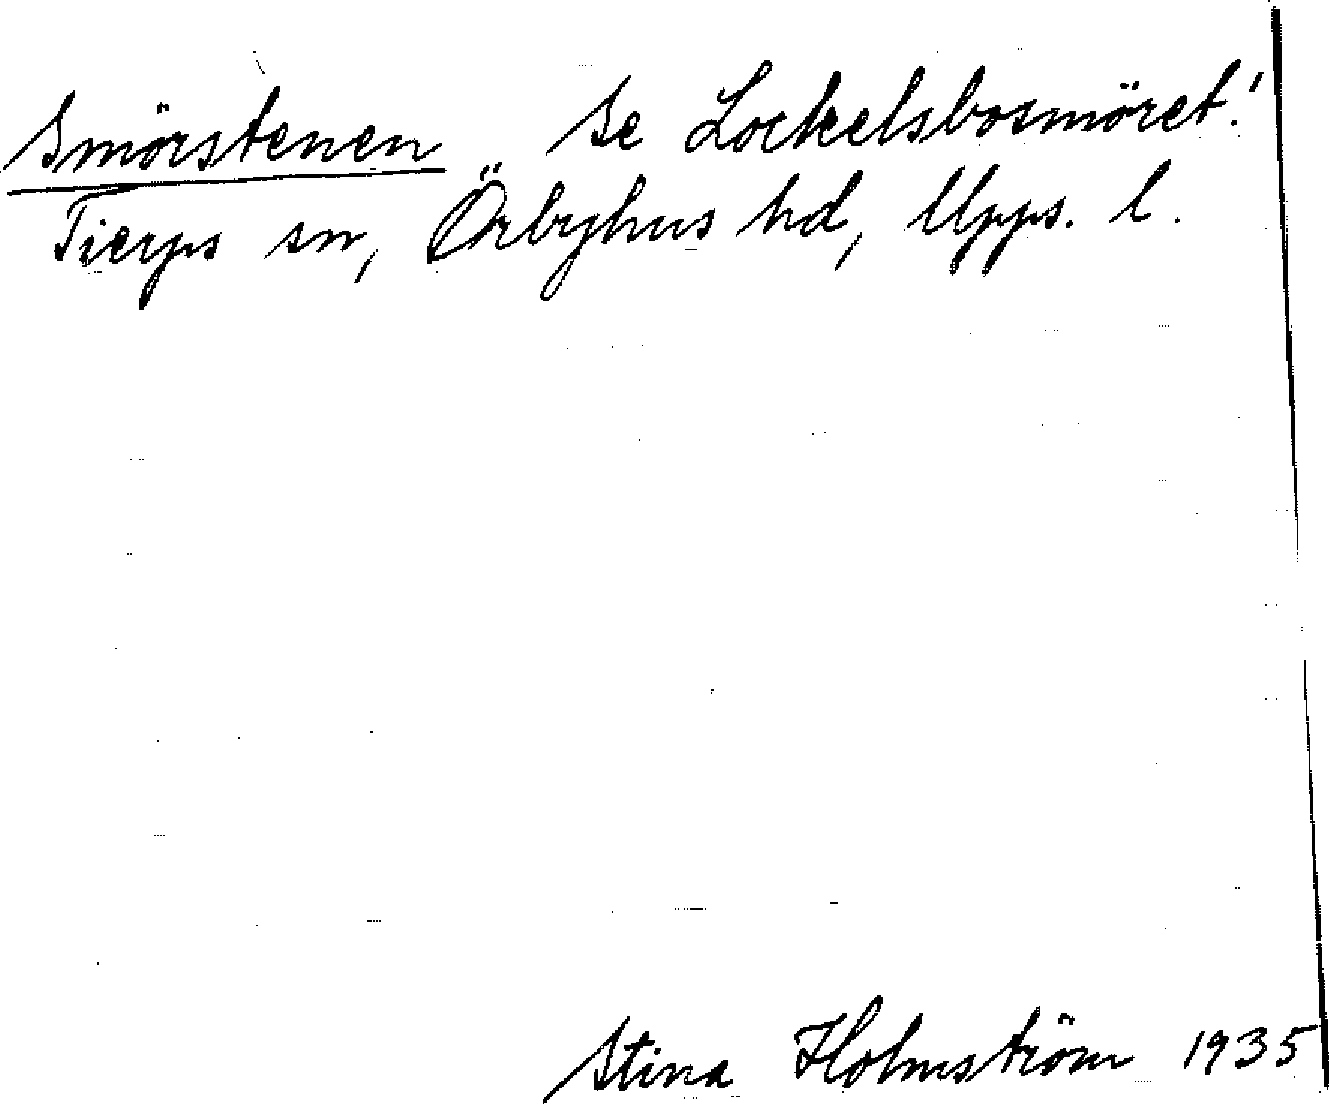 Smörstenen Se Lockelsbosmöret!
Tierps sn, Örbyhus hd, Upps. l.
Stina Holmström 1935